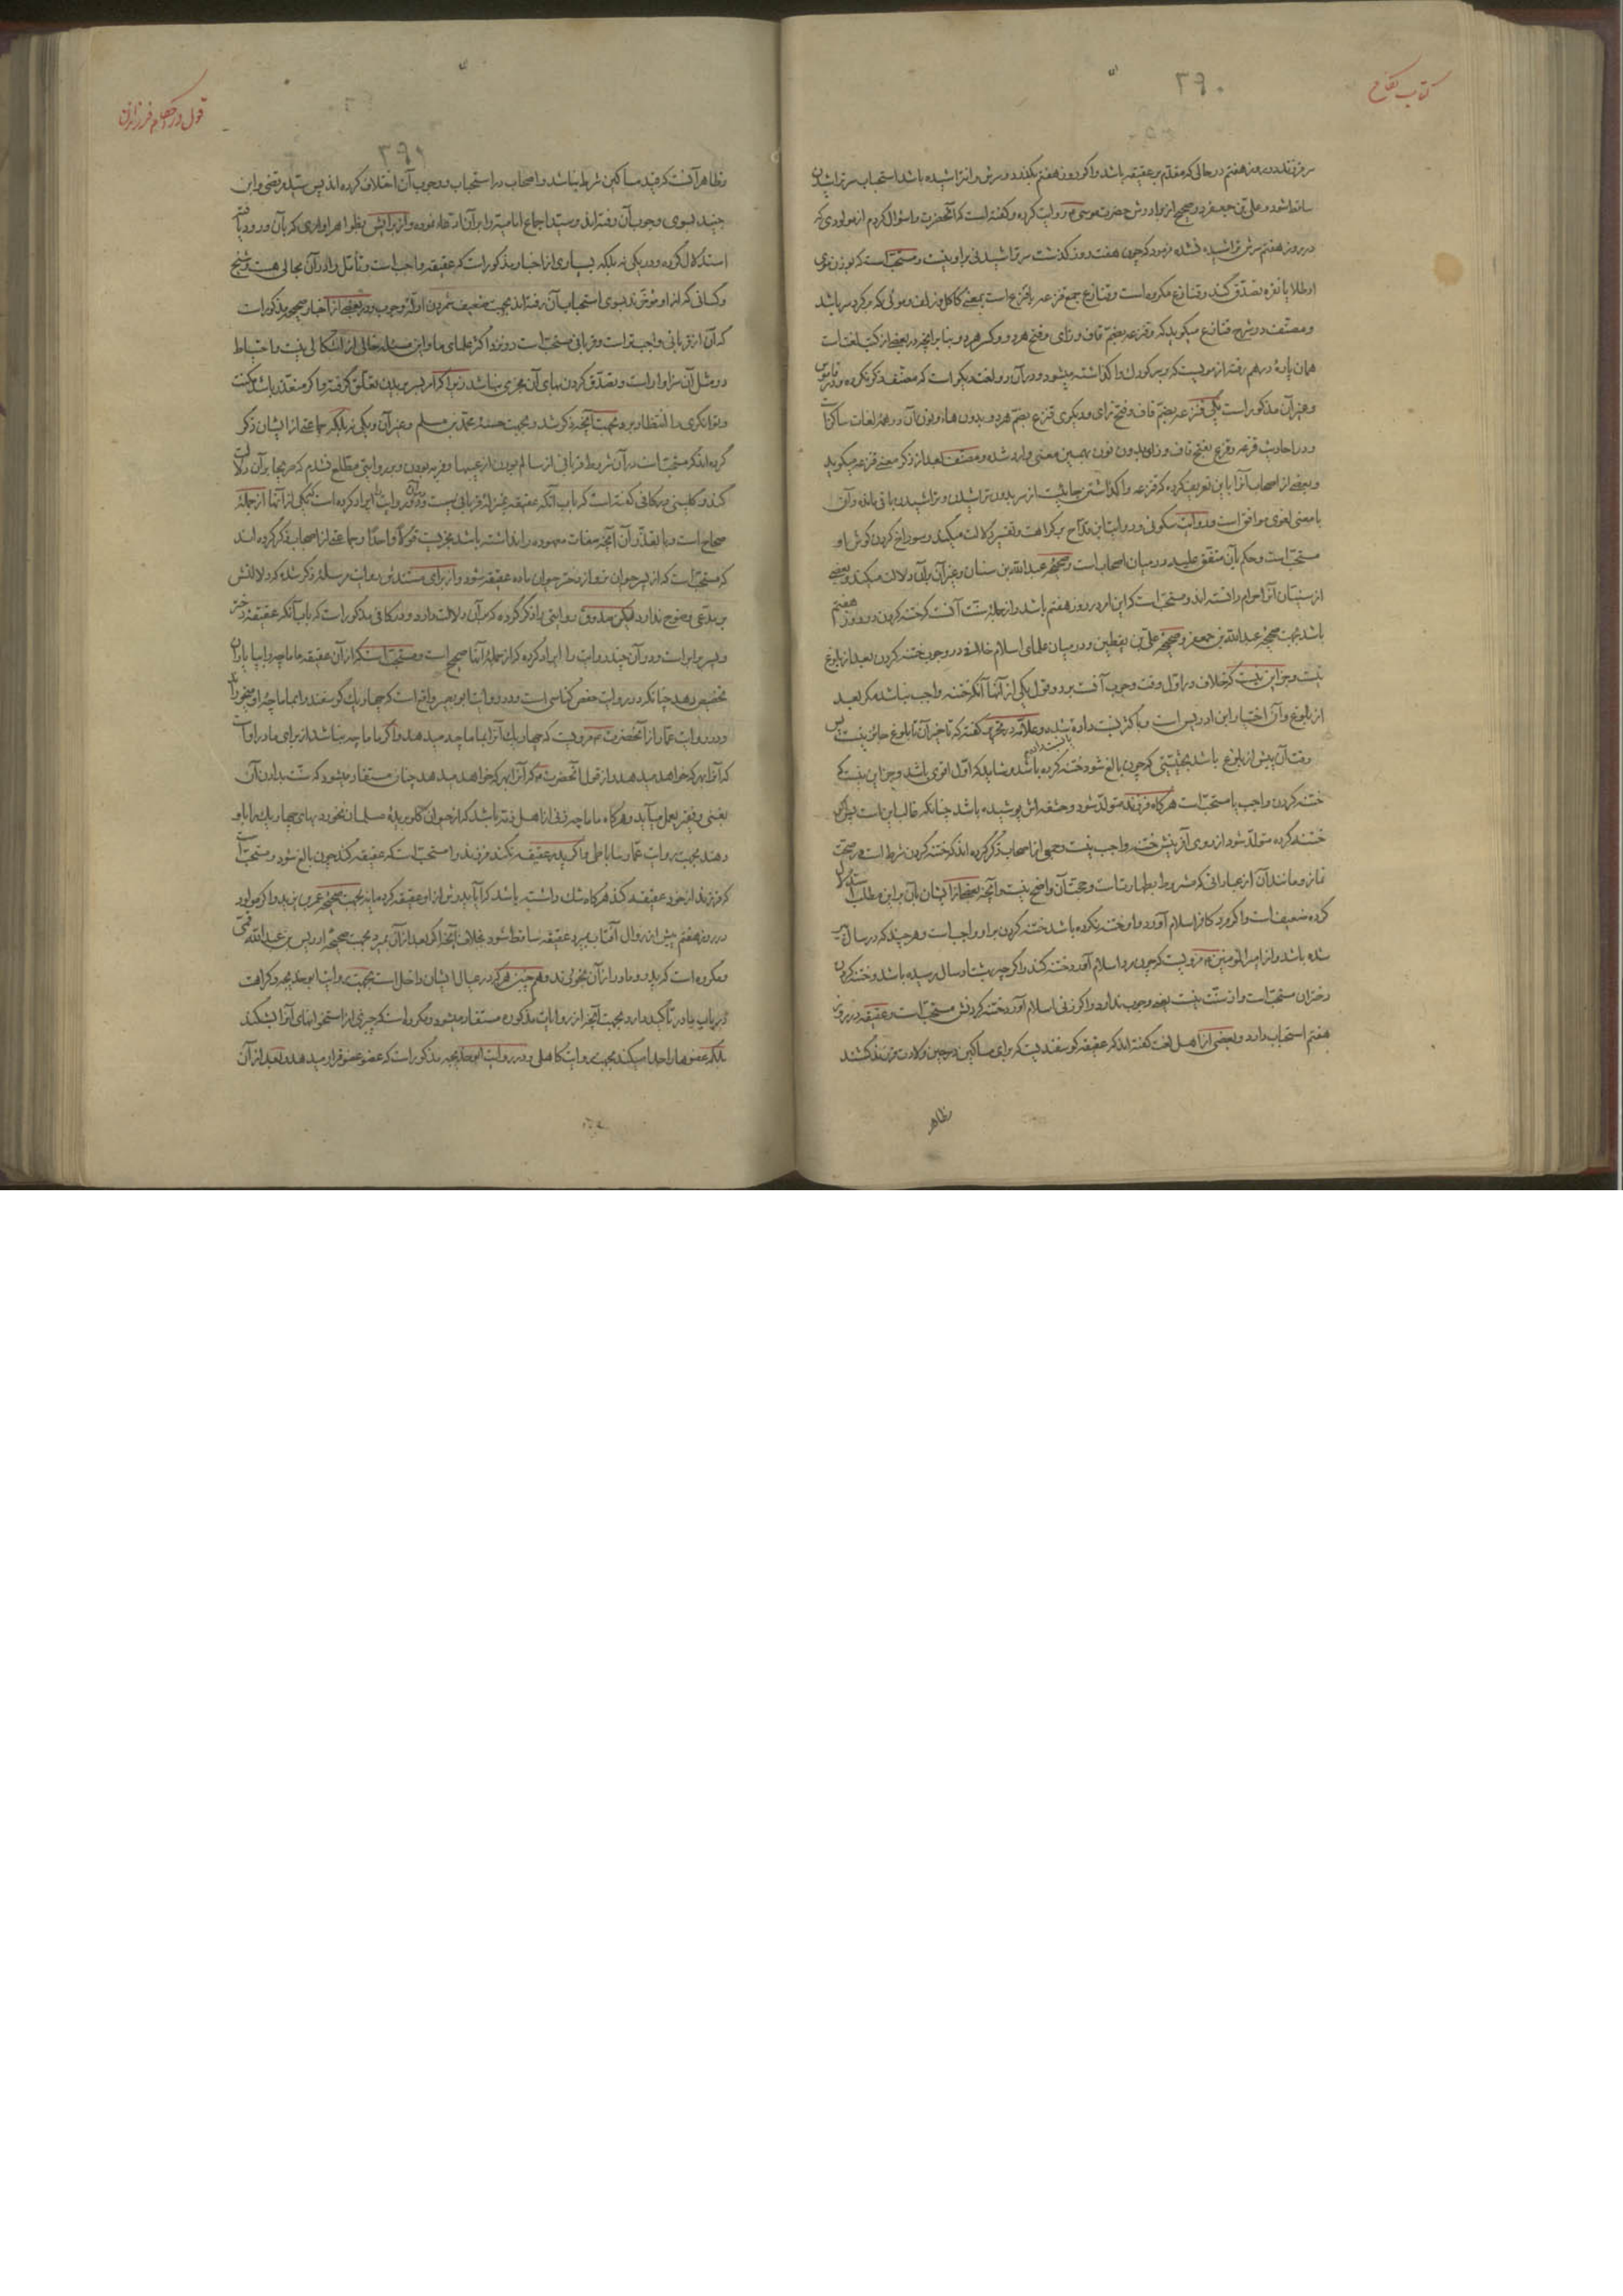 کتاب نکاح
۳۹۰
سر فرزند در روز هفتم در حالی که مقدم بر عقیقه باشد و اگر روز هفتم بگذرد و سرش را نتراشیده باشد استحباب سر تراشیدن
ساقط شود و علی بن جعفر در صحیح از برادرش حضرت موسی روایت کرده و گفته است که آنحضرت را سؤال کردم از مولودی که
در روز هفتم سرش تراشیده نشده فرمود که چون هفت روز گذشت سر تراشیدنی بر او نیست و مستحب است که بوزن موی
او طلا یا نقره تصدق کنند و قنازع مکروه است و قنازع جمع قنزعه یا قنزع است بمعنی کاکل و زلف و موئی که بر گرد سر باشد
و مصنف در شرح قنازع میگوید که قنزعه بضم قاف و زای و فتح هر دو و کسر هر دو و بنا بر آنچه در بعضی از کتب لغت است
همان پاره درهم رفته از مویست که بر سر کودک وا گذاشته میشود و در آن دو لغت دیگر است که مصنف ذکر نکرده و در قاموس
و غیر آن مذکور است یکی قنزعه بضم قاف و فتح زای و دیگری قنزع بضم هر دو بدون هاء و نون آن در همهٔ لغات ساکن است
و در احادیث قزعه و قزع بفتح قاف و زای بدون نون بهمین معنی وارد شده و مصنف بعد از ذکر معنی قنزعه میگوید
و بعضی از اصحاب آنرا باین تعریف کرده که قنزعه وا گذاشتن جائیست از سر بدون تراشیدن و تراشیدن باقی مانده و آن
با معنی لغوی موافق است و روایت سکونی و روایت ابن قداح بر کراهت و تفسیر دلالت میکند و سوراخ کردن گوش او
مستحب است و حکم بآن متفق علیه در میان اصحاب است و صحیحهٔ عبد الله بن سنان و غیر آن بر آن دلالت میکند و بعضی
از سنیان آنرا حرام دانسته‌اند و مستحب است که این امر در روز هفتم باشد و از جملهٔ سنت آنست که ختنه کردن در روز هفتم
باشد بجهت صحیحهٔ عبد الله بن جعفر و صحیحهٔ علی بن یقطین و در میان علمای اسلام خلافی در وجوب ختنه کردن بعد از بلوغ
نیست و جز این نیست که خلاف در اول وقت وجوب آنست بر دو قول یکی از آنها آنکه ختنه واجب نباشد مگر بعد
از بلوغ و آن اختیار ابن ادریس است و باکثر نسبت داده شده و علامه در تحریر گفته که تاخیر آن تا بلوغ جائز نیست پس
وقت آن پیش از بلوغ باشد بحیثیتی که چون بالغ شود ختنه کرده باشد و شاید که اول اقوی باشد و جز این نیست که
ختنه کردن واجب یا مستحب است هر گاه فرزند متولد شود و حشفه‌اش پوشیده باشد چنانکه غالب این است پس اگر
ختنه کرده متولد شود از روی آفرینش ختنه واجب نیست و جمعی از اصحاب ذکر کرده‌اند که ختنه کردن شرط است در صحت
نماز و مانند آن از عباداتی که مشروط بطهارتست و حجت آن واضح نیست و آنچه بعضی از ایشان بآن بر این مطلب استدلال
کرده ضعیف است و اگر مرد کافر اسلام آورد و او ختنه نکرده باشد ختنه کردن بر او واجب است و هر چند که در سال پیر
شده باشد و از امیر المؤمنین مرویست که چون مرد اسلام آورد ختنه کند و اگر چه بهشتاد سال رسیده باشد و ختنه کردن
دختران مستحب است و از سنت نیست یعنی وجوب ندارد و اگر زنی اسلام آورد ختنه کردنش مستحب است و عقیقه در روز
هفتم استحباب دارد و بعضی از اهل لغت گفته‌اند که عقیقه گوسفندیست که برای مساکین در حین ولادت فرزند کشند
و ظاهر
قول در احکام فرزندان
۳۹۱
و ظاهر آنست که قید مساکین شرط نباشد و اصحاب در استحباب و وجوب آن اختلاف کرده‌اند پس سید مرتضی و ابن
جنید بسوی وجوب آن رفته‌اند و سید اجماع امامیه را بر آن ادعا نموده و از برایش بظواهر اوامری که بآن ورود یافته
استدلال کرده و در یکی نه بلکه بسیاری از اخبار مذکور است که عقیقه واجب است و تأمل را در آن مجالی هست و شیخ
و کسانی که از او مؤخرند بسوی استحباب آن رفته‌اند بجهت ضعیف شمردن ادلهٔ وجوب و در بعضی از اخبار صحیحه مذکور است
که آن از قربانی واجب‌تر است و قربانی مستحب است در نزد اکثر علمای ما و این مسئله خالی از اشکالی نیست و احتیاط
در مثل آن سزاوار است و تصدق کردن بهای آن مجزی نباشد زیرا که امر بسر بریدن تعلق گرفته و اگر متعذر باشد مکنت
و توانگری را انتظار برد بجهت آنچه ذکر شد و بجهت حسنهٔ محمد بن مسلم و غیر آن و یکی نه بلکه جماعتی از ایشان ذکر
کرده‌اند که مستحب است در آن شروط قربانی از سالم بودن از عیبها و فربه بودن و بر روایتی مطلع نشدم که صریحا بر آن دلالت
کند و کلینی در کافی گفته است که باب آنکه عقیقه بمنزلهٔ قربانی نیست و در آن دو روایت را ایراد کرده است که یکی از آنها از جملهٔ
صحاح است و بنا بر تقدیر آن آنچه صفات معهوده را نداشته باشد مجزیست قولا واحدا و جماعتی از اصحاب ذکر کرده‌اند
که مستحب است که از پسر حیوان نر و از دختر حیوان ماده عقیقه شود و از برای مستندش روایت مرسله ذکر شده که دلالتش
بر مدعی وضوح ندارد لیکن صدوق روایتی را ذکر کرده که بر آن دلالت دارد و در کافی مذکور است که باب آنکه عقیقهٔ دختر
و پسر برابر است و در آن چند روایت را ایراد کرده که از جملهٔ آنها صحیح است و مستحب است که از آن عقیقه ماماچه را بپا یا ران
تخصیص دهد چنانکه در روایت حفص کناسی است و در روایت ابو بصیر واقع است که چهار یک گوسفند را بماماچه او بخوراند
و در روایت عمار از آنحضرت مرویست که چهار یک آنرا بماماچه میدهد و اگر ماماچه نباشد از برای مادر او است
که آنرا بهر که خواهد میدهد و از قول آنحضرت که آنرا بهر که خواهد میدهد چنان مستفاد میشود که سنت بدادن آن
بغنی و فقیر بعمل میآید و هر گاه ماماچه زنی از اهل ذمه باشد که از حیوانی گلو بریدهٔ مسلمان نخورد بهای چهار یک را باو
دهند بجهت روایت عمار ساباطی و اگر پدر عقیقه نکند فرزند را مستحب است که عقیقه کند چون بالغ شود و مستحب است
که فرزند از خود عقیقه کند هر گاه شک داشته باشد که آیا پدرش از او عقیقه کرده یا نه بجهت صحیحهٔ عمر بن یزید و اگر مولود
در روز هفتم پیش از زوال آفتاب بمیرد عقیقه ساقط شود بخلاف آنجا که بعد از آن بمیرد بجهت صحیحهٔ ادریس بن عبد الله قمی
و مکروه است که پدر و مادر از آن بخورند و هم چنین هر که در عیال ایشان داخل است بجهت روایت ابو خدیجه و کراهت
در باب مادر تأکید دارد بجهت آنچه از روایات مذکوره مستفاد میشود و مکروه است که چیزی از استخوانهای آنرا بشکند
بلکه عضوها را جدا میکند بجهت روایت کاهلی و در روایت ابو خدیجه مذکور است که عضو عضو قرار میدهد و بعد از آن